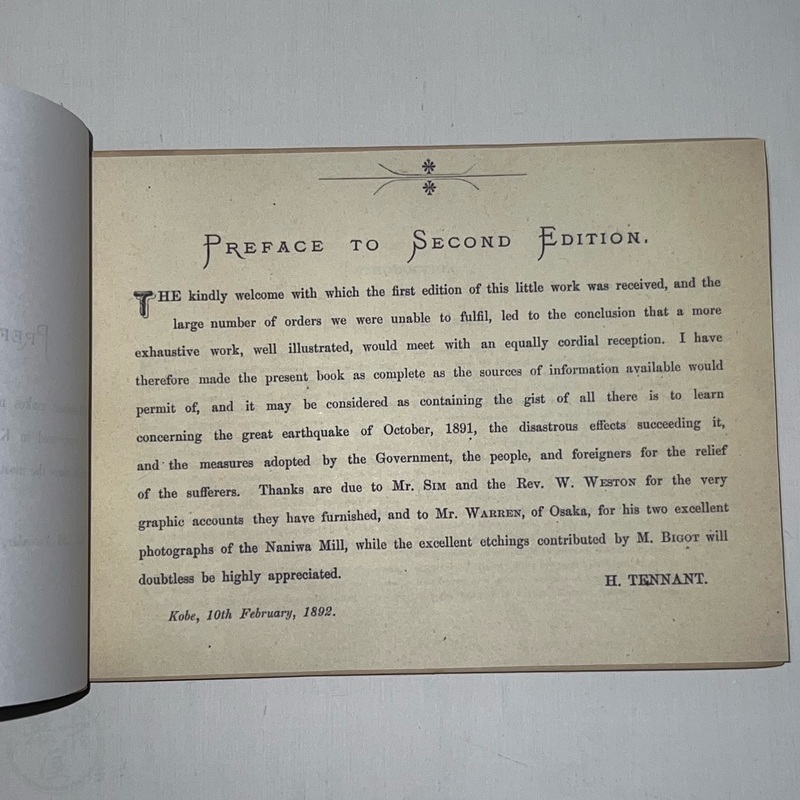 PREFACE TO SECOND EDITION.
THE kindly welcome with which the first edition of this little work was received, and the
large number of orders we were unable to fulfil, led to the conclusion that a more
exhaustive work, well illustrated, would meet with an equally cordial reception. I have
therefore made the present book as complete as the sources of information available would
permit of, and it may be considered as containing the gist of all there is to learn
concerning the great earthquake of October, 1891, the disastrous effects succeeding it,
and the measures adopted by the Government, the people, and foreigners for the relief
of the sufferers. Thanks are due to Mr. SIM and the Rev. W. WESTON for the very
graphic accounts they have furnished, and to Mr. WARREN, of Osaka, for his two excellent
photographs of the Naniwa Mill, while the excellent etchings contributed by M. BIGOT will
doubtless be highly appreciated.
H. TENNANT.
Kobe, 10th February, 1892.